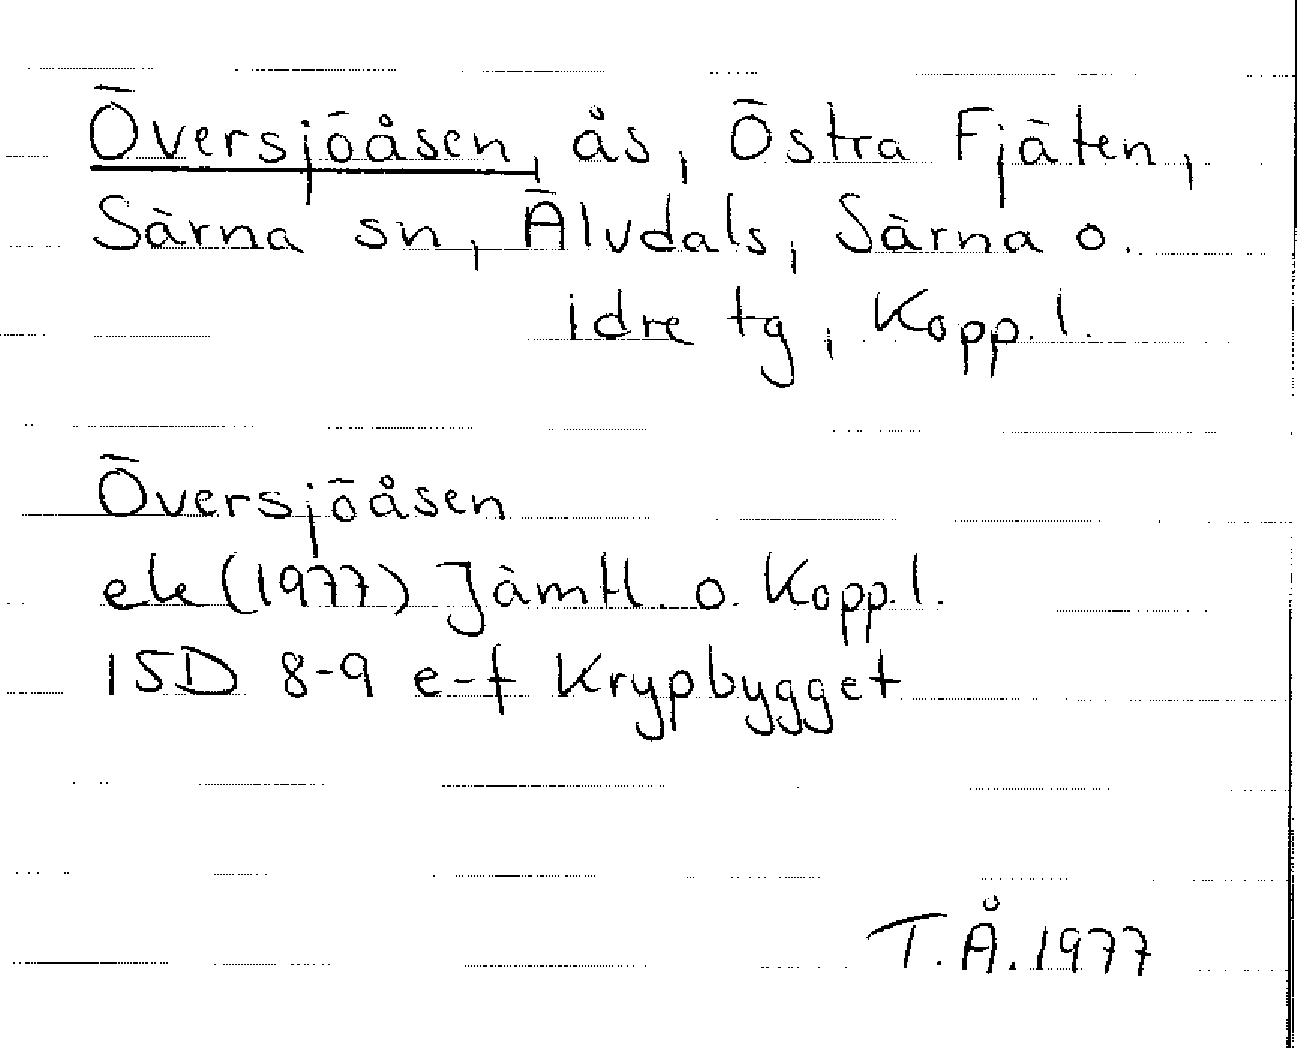 Översjöåsen, ås, Östra Fjäten,
Särna sn, Älvdals, Särna o.
Idre tg, Kopp. l.
Översjöåsen
ek (1977) Jämtl. o. Kopp. l.
15D 8-9 e-f Krypbygget
T.Å. 1977